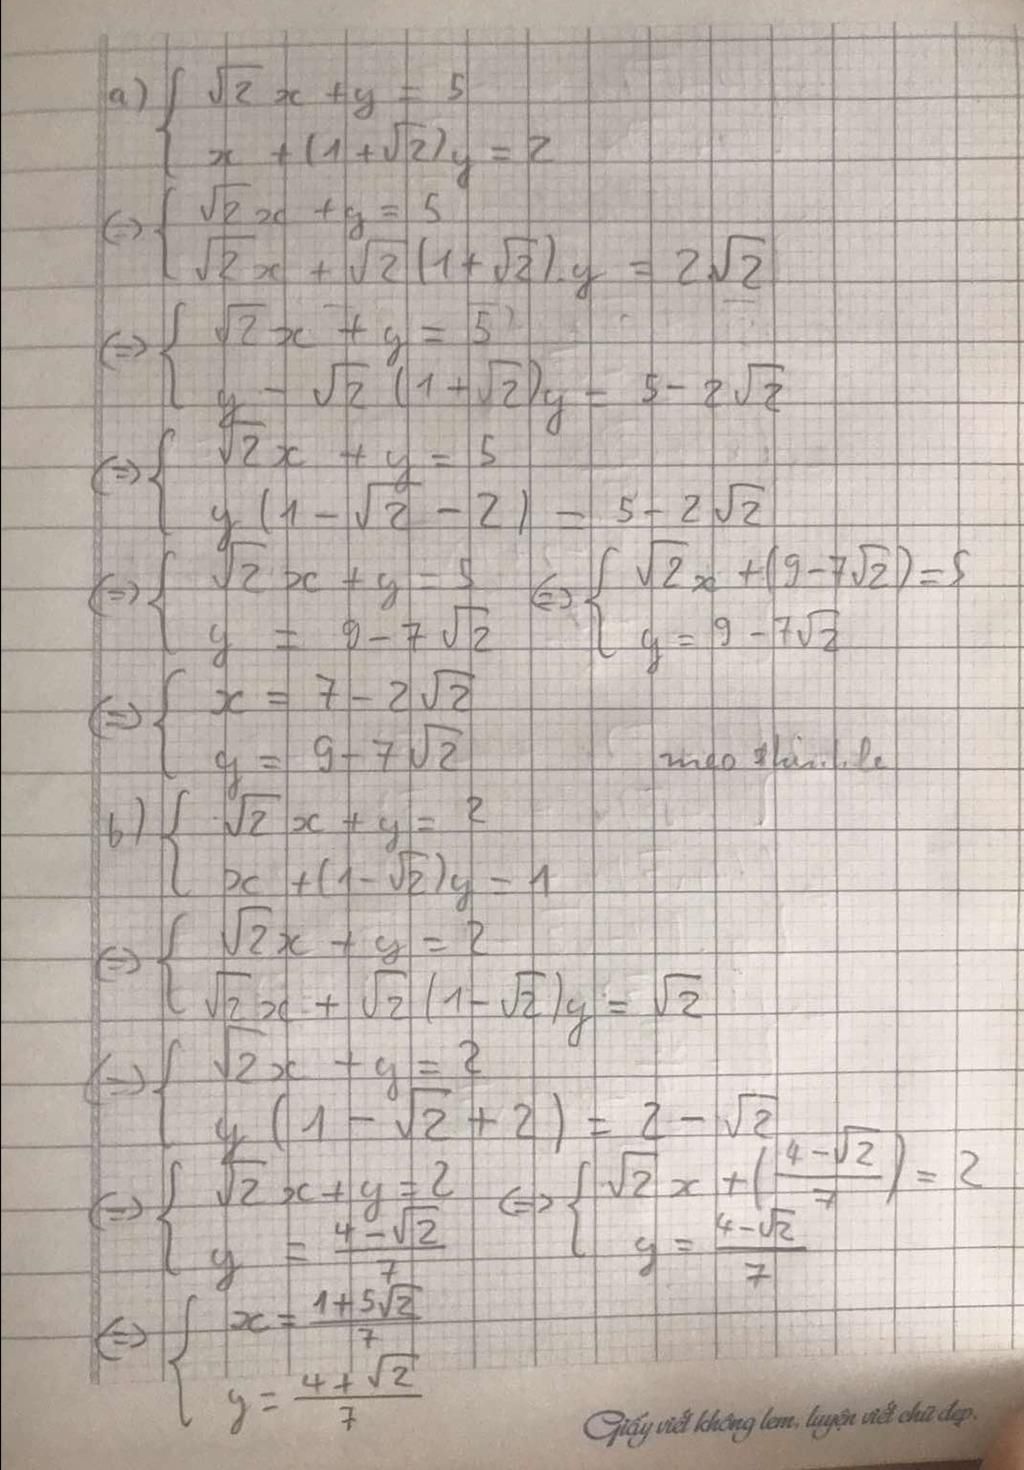 a) { √2x + y = 5
x + (1+√2)y = 2
(=) { √2x + y = 5
√2x + √2(1+√2).y = 2√2
(=) { √2x + y = 5
y - √2(1+√2)y = 5 - 2√2
(=) { √2x + y = 5
y(1 - √2 - 2) = 5 - 2√2
(=) { √2x + y = 5 (=) { √2x + (9-7√2) = 5
y = 9 - 7√2 y = 9 - 7√2
(=) { x = 7 - 2√2
y = 9 - 7√2
b) { √2x + y = 2
x + (1-√2)y = 1
(=) { √2x + y = 2
√2x + √2(1-√2)y = √2
(=) { √2x + y = 2
y(1 - √2 + 2) = 2 - √2
(=) { √2x + y = 2 (=) { √2x + ((4-√2)/7) = 2
y = (4-√2)/7 y = (4-√2)/7
(=) { x = (1+5√2)/7
y = (4+√2)/7
Giấy viết không lem, luyện viết chữ đẹp.